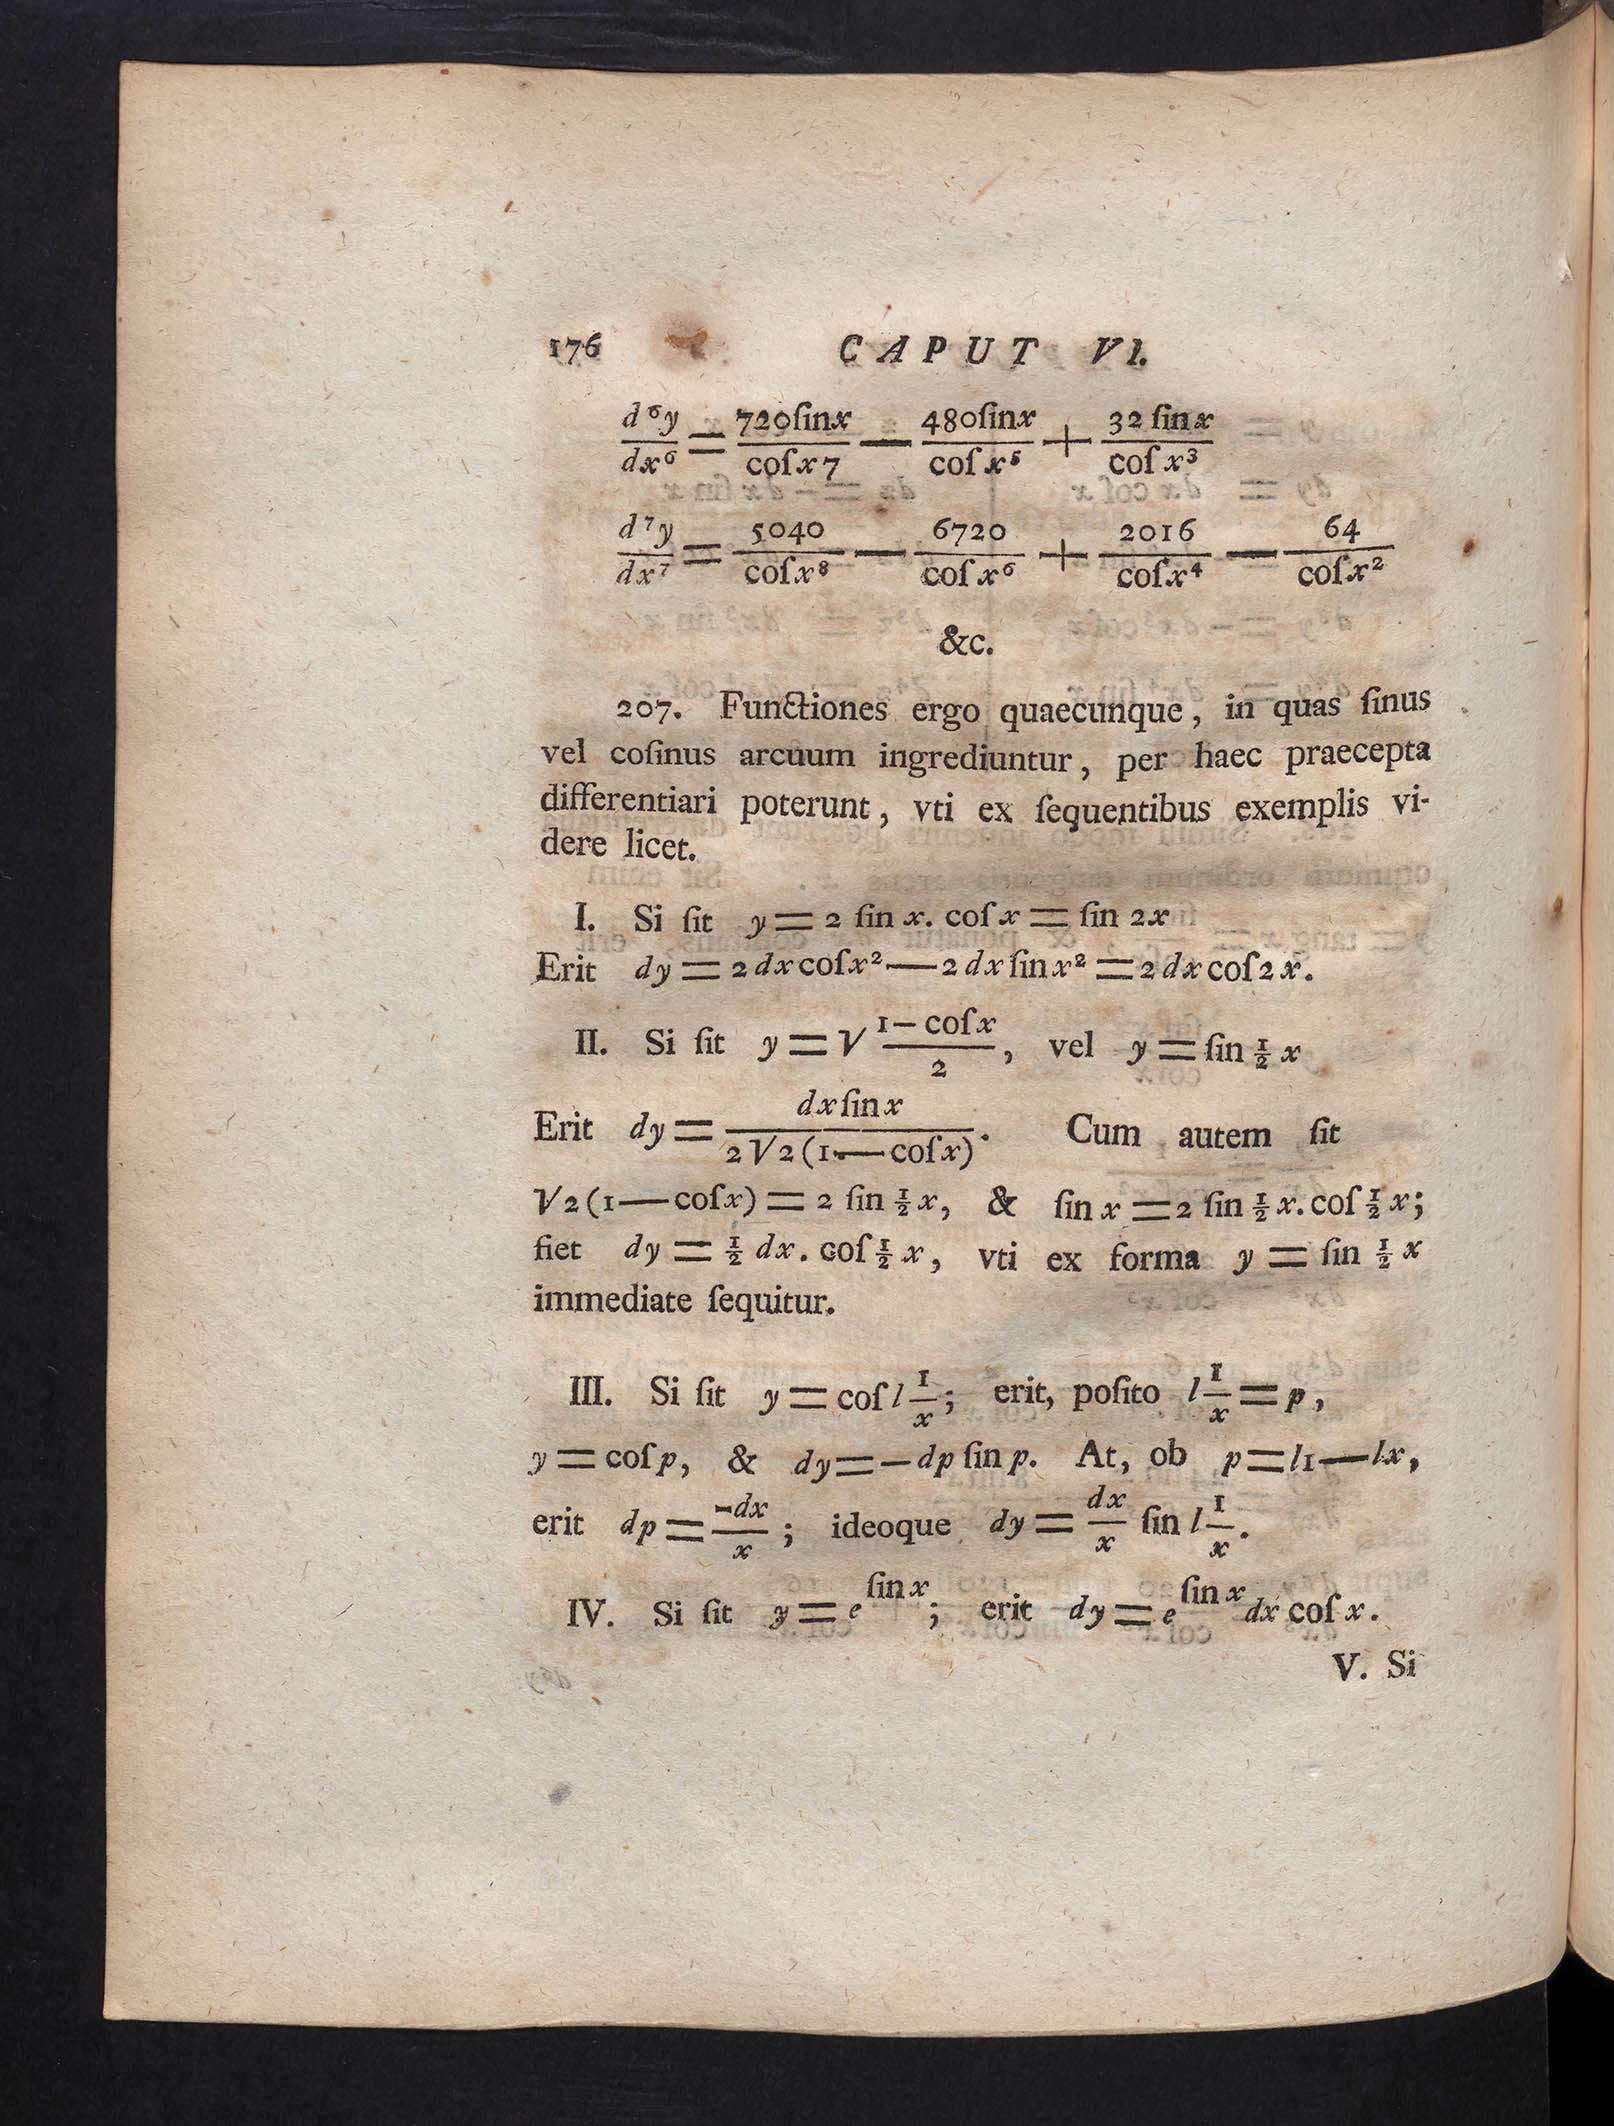 176 CAPUT VI.
d⁶y/dx⁶ = 720ſinx/coſx7 — 480ſinx/coſx⁵ + 32 ſinx/coſx³
d⁷y/dx⁷ = 5040/coſx⁸ — 6720/coſx⁶ + 2016/coſx⁴ — 64/coſx²
&c.
207. Functiones ergo quaecunque, in quas ſinus
vel coſinus arcuum ingrediuntur, per haec praecepta
differentiari poterunt, vti ex ſequentibus exemplis vi-
dere licet.
I. Si ſit y = 2 ſin x. coſ x = ſin 2x
Erit dy = 2 dx coſx² — 2 dx ſinx² = 2 dx coſ 2x.
II. Si ſit y = √ (1 — coſx)/2, vel y = ſin ½ x
Erit dy = dx ſinx/(2√2(1—coſx)). Cum autem ſit
√2(1—coſx) = 2 ſin ½ x, & ſin x = 2 ſin ½ x. coſ ½ x;
fiet dy = ½ dx. coſ ½ x, vti ex forma y = ſin ½ x
immediate ſequitur.
III. Si ſit y = coſ l 1/x; erit, poſito l 1/x = p,
y = coſ p, & dy = — dp ſin p. At, ob p = l1 — lx,
erit dp = -dx/x; ideoque dy = dx/x ſin l 1/x.
IV. Si ſit y = e^ſinx; erit dy = e^ſinx dx coſ x.
V. Si